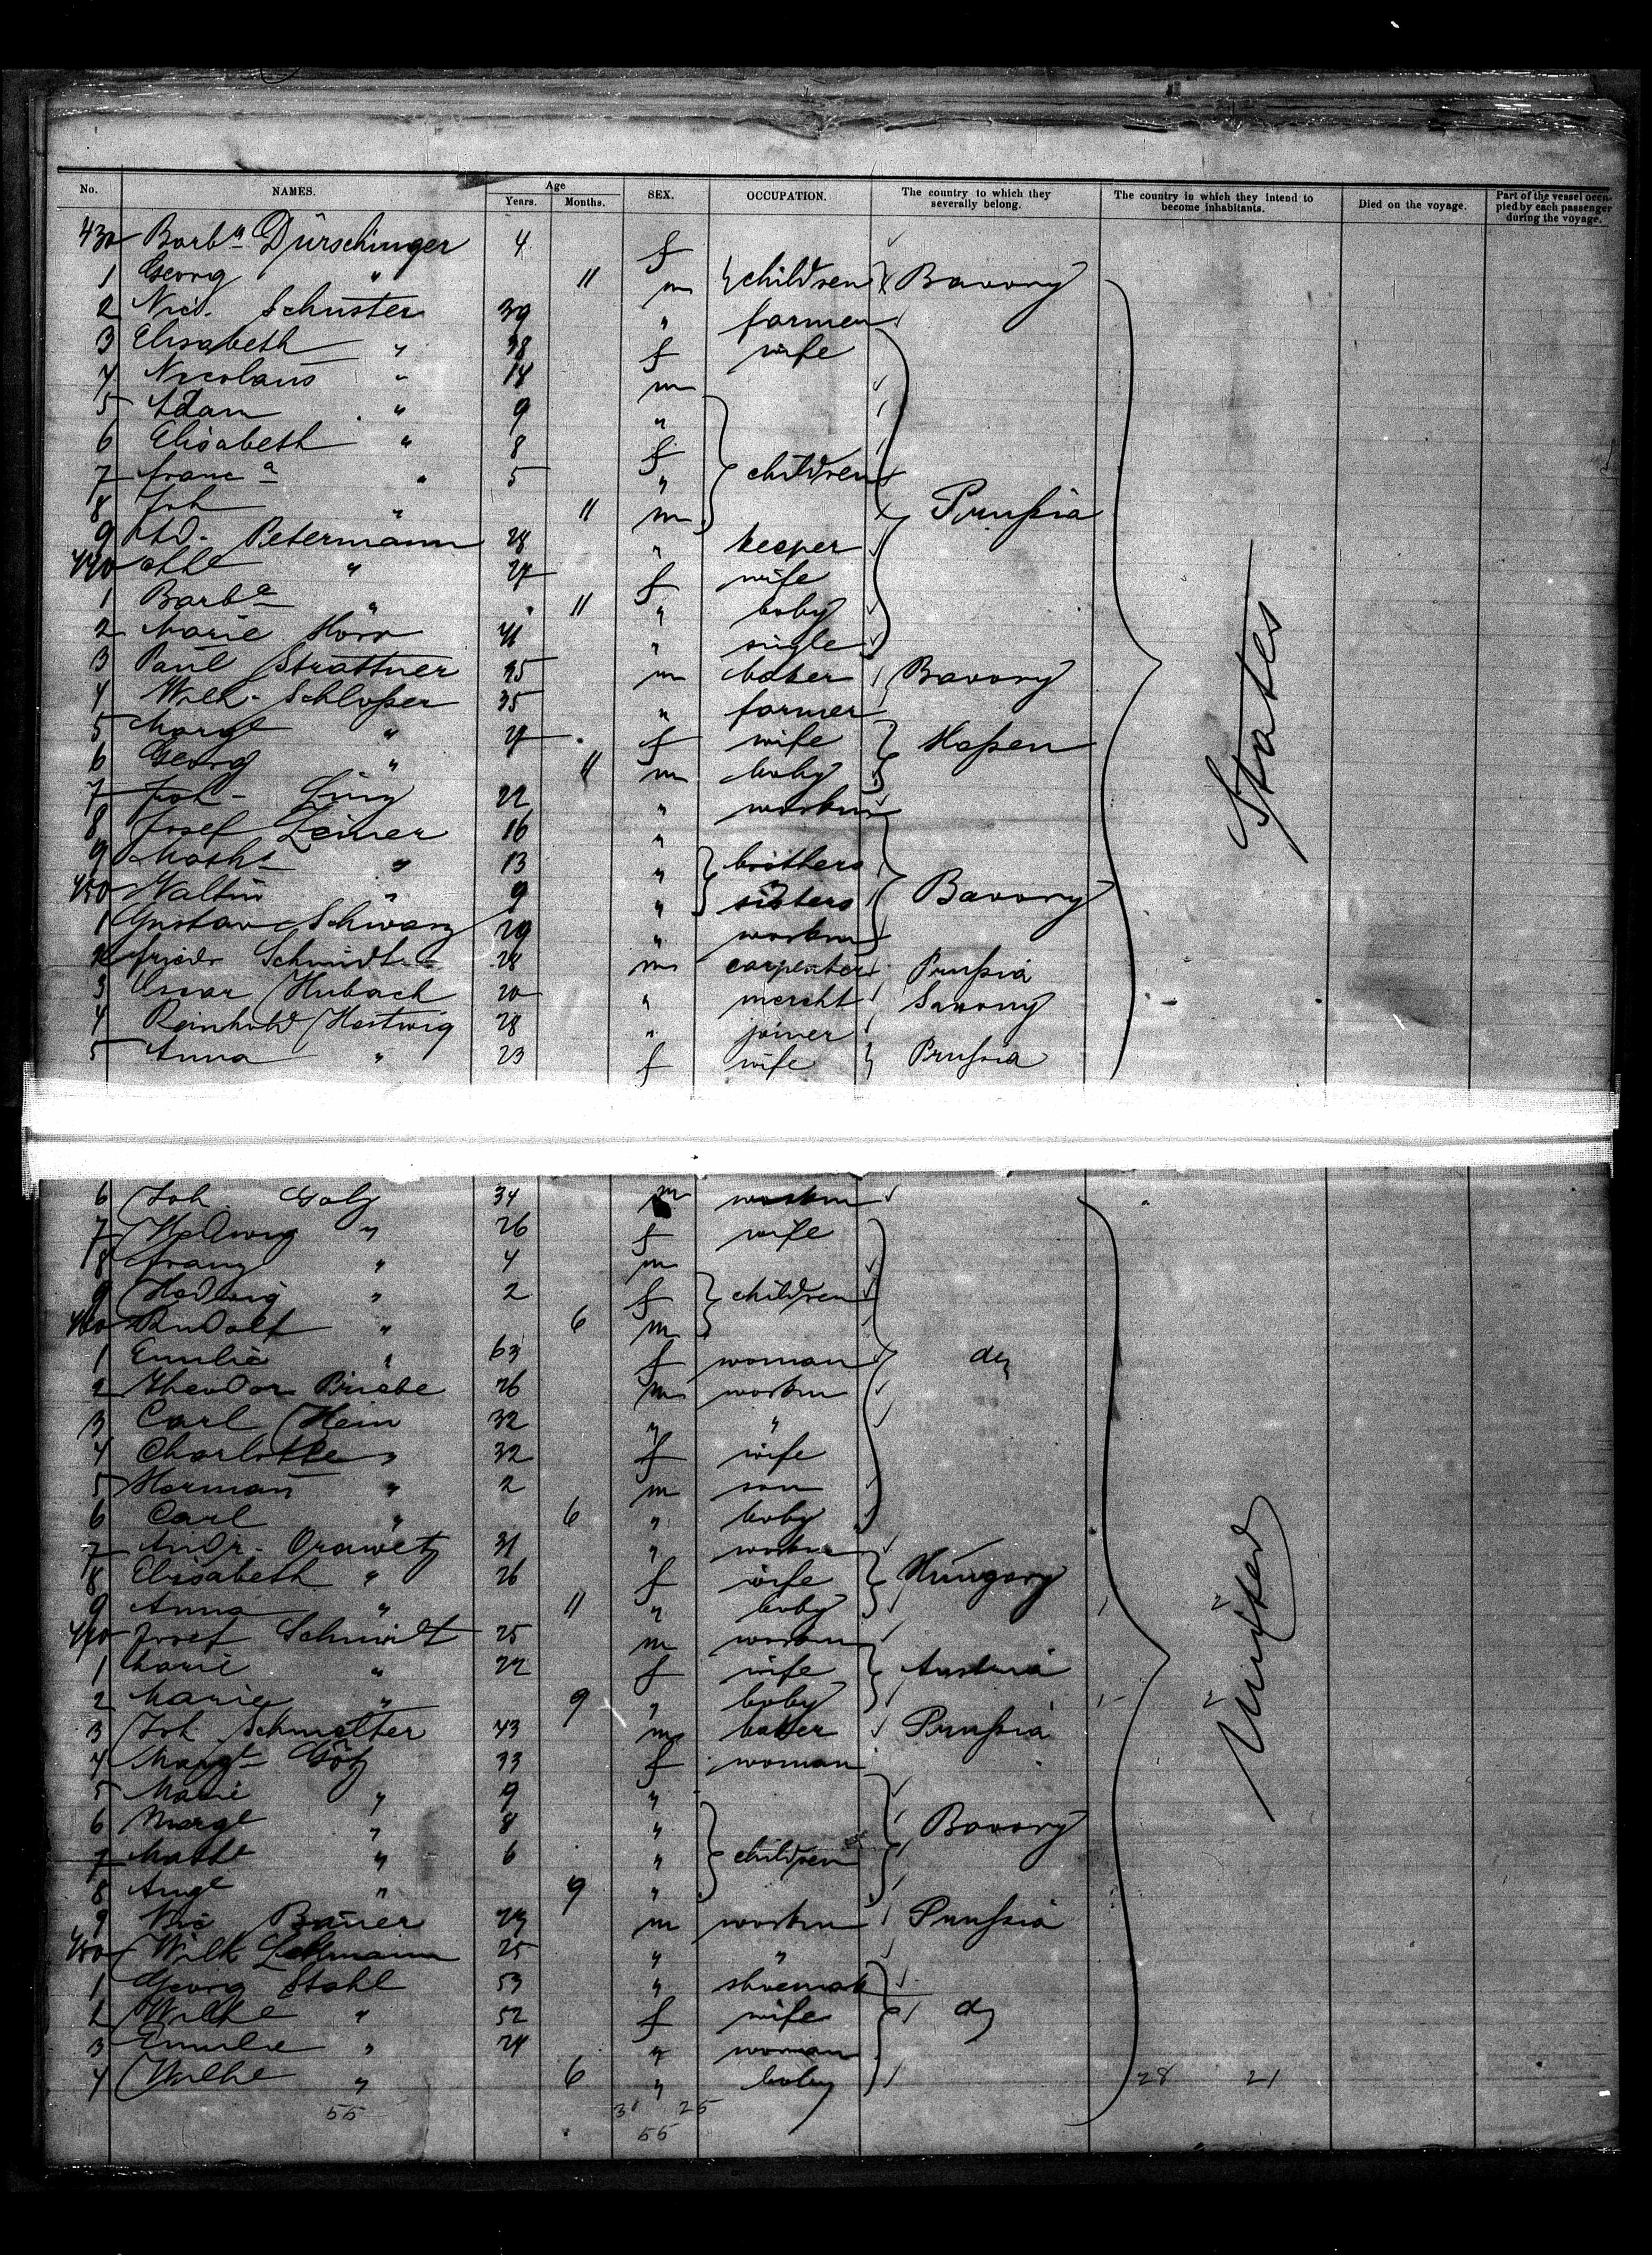 No. NAMES. Age Years. Months. SEX. OCCUPATION. The country to which they severally belong. The country in which they intend to become inhabitants. Died on the voyage. Part of the vessel occupied by each passenger during the voyage.
430 Barbª Dürschinger 4 f
1 Georg " 11 m children Bavary
2 Nic. Schuster 39 " farmer
3 Elisabeth " 38 f wife
4 Nicolaus " 14 m
5 Adam " 9 "
6 Elisabeth " 8 f
7 Francª " 5 " children
8 Joh " 11 m Prußia
9 Petermann 28 " keeper
440 " 27 f wife
1 Barbª " 11 " baby
2 Marie Horn 41 " single
3 Paul Strattner 25 m baker Bavary
4 Wilh. Schloßer 35 " farmer
5 Margt " 27 f wife Haßen
6 Georg " 11 m baby
7 Joh. 22 " workm
8 Josef Zeiner 16 "
9 Maths " 13 " brothers
450 Valtin " 9 " sisters Bavary
1 Gustav Schwarz 29 " workm
2 Friedr Schmidt 28 m carpenter Prußia
3 Oscar Hubach 20 " mercht Saxony
4 Reinhold Hartwig 28 " joiner
5 Anna " 23 f wife Prußia
States
6 Joh. Golz 34 m workm
7 Hedwig " 26 f wife
8 Franz " 4 m
9 Hedwig " 2 f children
460 Rudolf " 6 m
1 Emilie " 63 f woman do
2 Theodor Briebe 26 m workm
3 Carl Hein 32 " "
4 Charlotte " 32 f wife
5 Herman " 2 m son
6 Carl " 6 " baby
7 Andr. Orawetz 31 " workm
8 Elisabeth " 26 f wife Hungary
9 Anna " 11 " baby
470 Josef Schmidt 25 m workm
1 Marie " 22 f wife Austria
2 Marie " 9 " baby
3 Joh Schmelter 43 m baker Prußia
4 Margt Götz 33 f woman
5 Marie " 9 "
6 Margt " 8 " Bavary
7 " 6 " children
8 " 9 "
9 Nic Bauer 29 m workm Prußia
480 Wilh Lehmann 25 " "
1 Georg Stahl 53 " shoemak
2 Wilhe " 52 f wife do
3 Emilie " 24 " woman
4 Wilhe " 6 " baby 28 21
United
55 31 25
55